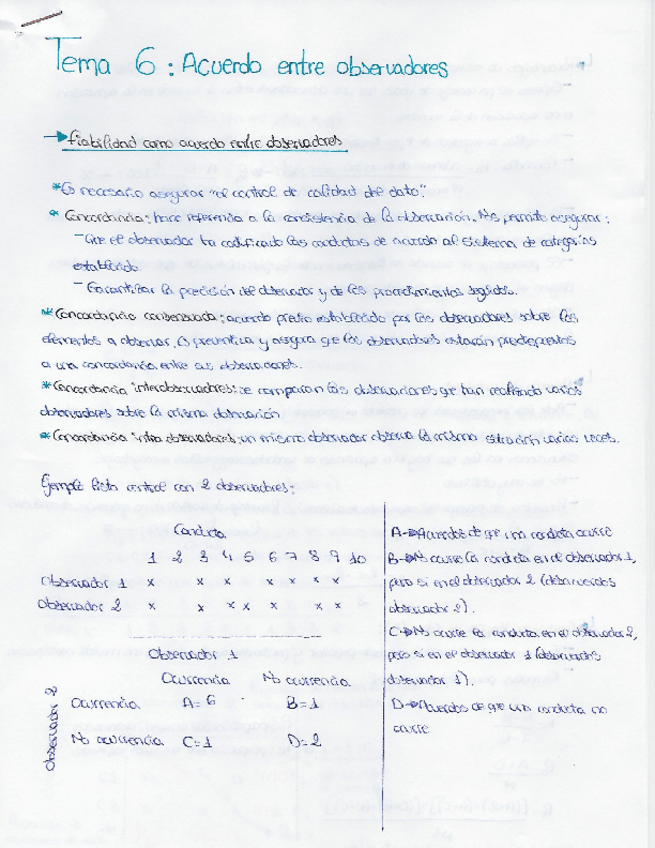 Tema 6: Acuerdo entre observadores
→ fiabilidad como acuerdo entre observadores
*Es necesario asegurar "el control de calidad del dato".
* Concordancia: hace referencia a la consistencia de la observación. Nos permite asegurar:
- Que el observador ha codificado las conductas de acuerdo al sistema de categorías
establecido
- Garantizar la precisión del observador y de los procedimientos seguidos.
* Concordancia consensuada: acuerdo previo establecido por los observadores sobre los
elementos a observar. Es preventiva y asegura que los observadores estarán predispuestos
a una concordancia entre sus observaciones.
* Concordancia interobservadores: se comparan las observaciones que han realizado varios
observadores sobre la misma observación
* Concordancia intra observadores: un mismo observador observa la misma situación varias veces.
Ejemplo lista control con 2 observadores:
Conducta
1 2 3 4 5 6 7 8 9 10
Observador 1 x x x x x x x
Observador 2 x x x x x x x
Observador 1
Ocurrencia No ocurrencia
Observador 2
Ocurrencia A=6 B=1
No ocurrencia C=1 D=2
A→Acuerdos de que una conducta ocurre
B→No ocurre la conducta en el observador 1,
pero si en el observador 2 (desacuerdos
observador 2).
C→No ocurre la conducta en el observador 2,
pero si en el observador 1 (desacuerdos
observador 1).
D→Acuerdos de que una conducta no
ocurre